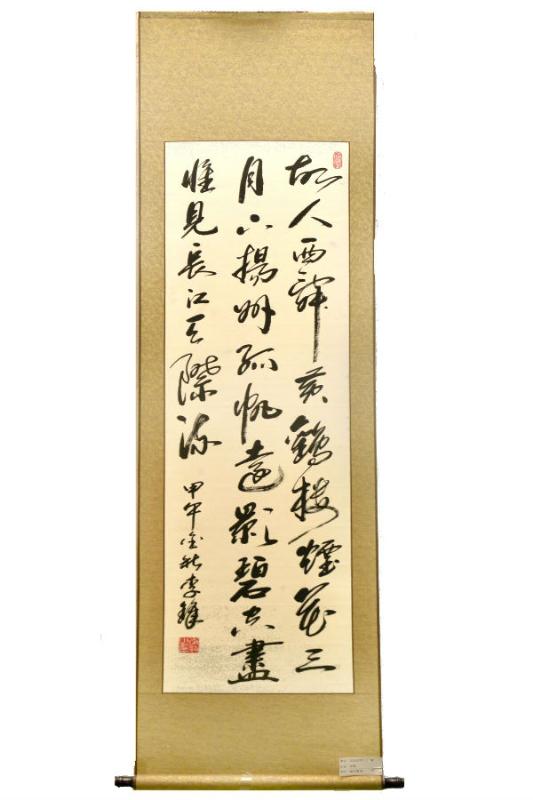 故人西辞黄鶴楼煙花三
月下揚州孤帆遠影碧空盡
惟見長江天際流
甲午金秋李雄